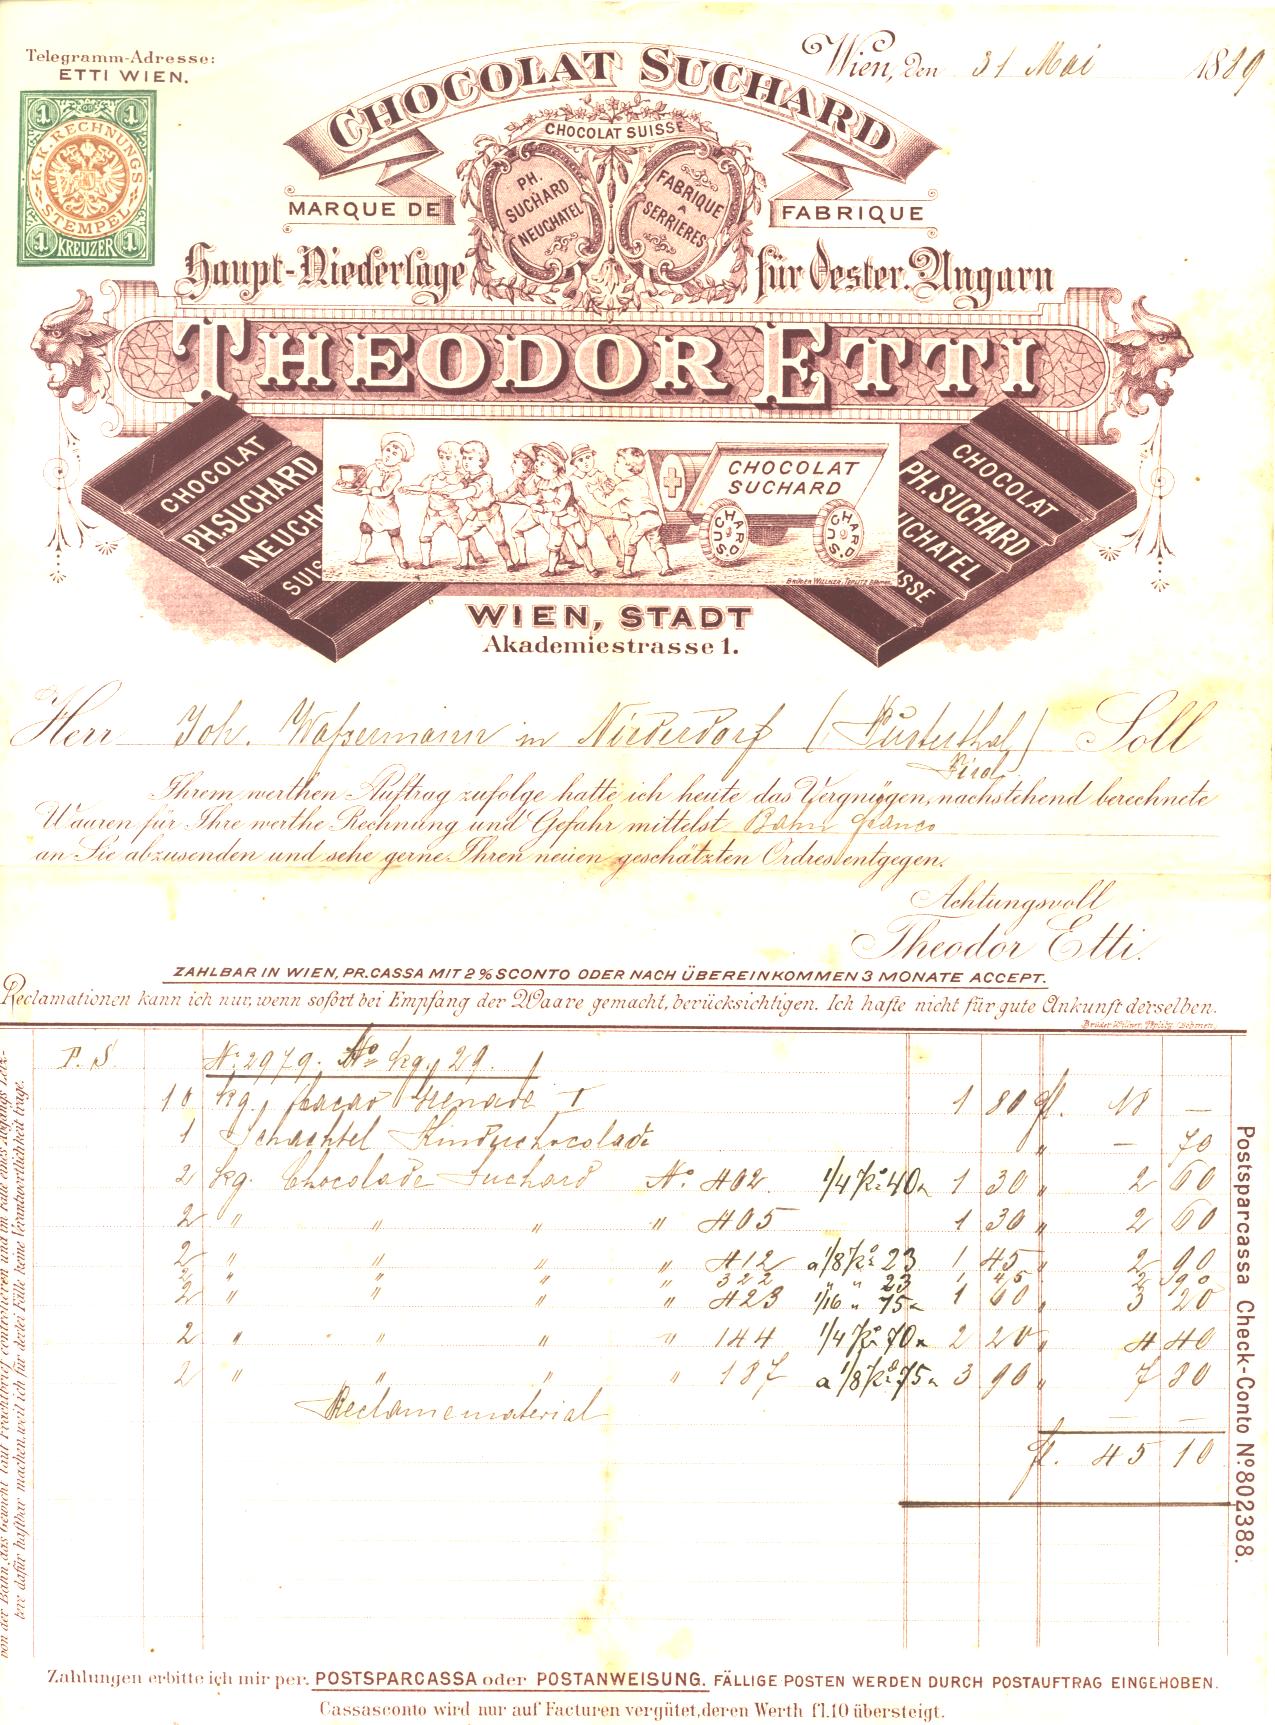 Telegramm-Adresse:
ETTI WIEN.
Wien, den 31 Mai 1889
1 1
K.K. RECHNUNGS
STEMPEL
1 KREUZER 1
CHOCOLAT SUCHARD
CHOCOLAT SUISSE
PH. SUCHARD NEUCHATEL
FABRIQUE A SERRIERES
MARQUE DE FABRIQUE
Haupt-Niederlage für Oester. Ungarn
THEODOR ETTI
CHOCOLAT
PH. SUCHARD
NEUCHA
SUIS
CHOCOLAT
SUCHARD
SUCHARD
SUCHARD
CHOCOLAT
PH. SUCHARD
UCHATEL
ISSE
BRÜDER WILLNER, TEPLITZ Böhmen.
WIEN, STADT
Akademiestrasse 1.
Herr Joh. Wassermann in Niederdorf (Pusterthal) Soll
Tirol
Ihrem werthen Auftrag zufolge hatte ich heute das Vergnügen, nachstehend berechnete
Waaren für Ihre werthe Rechnung und Gefahr mittelst Bahn franco
an Sie abzusenden und sehe gerne Ihren neuen geschätzten Ordres entgegen.
Achtungsvoll
Theodor Etti.
ZAHLBAR IN WIEN, PR. CASSA MIT 2% SCONTO ODER NACH ÜBEREINKOMMEN 3 MONATE ACCEPT.
Reclamationen kann ich nur, wenn sofort bei Empfang der Waare gemacht, berücksichtigen. Ich hafte nicht für gute Ankunft derselben.
Brüder Willner, Teplitz, Böhmen.
T. S. N: 2979. No kg. 29.
10 kg. Cacao I 1 80 fl. 18 —
1 Schachtel Kinderchocolade " — 70
2 kg. Chocolade Suchard No. 402 1/4 Ko 40 1 30 " 2 60
2 " " " " 405 1 30 " 2 60
2 " " " " 412 a 1/8 Ko 23 1 45 " 2 90
2 " " " " 322 " " 23 1 45 2 90
2 " " " " 423 1/16 " 75 1 60 " 3 20
2 " " " " 144 1/4 Ko 70 2 20 " 4 40
2 " " " " 187 a 1/8 Ko 75 3 90 " 7 80
Reclamematerial — —
fl. 45 10
von der Bahn, das Gewicht laut Frachtbrief controlieren und im Falle eines Abgangs Letz-
tere dafür haftbar machen, weil ich für derlei Fälle keine Verantwortlichkeit trage.
Postsparcassa Check-Conto No. 802388.
Zahlungen erbitte ich mir per. POSTSPARCASSA oder POSTANWEISUNG. FÄLLIGE POSTEN WERDEN DURCH POSTAUFTRAG EINGEHOBEN.
Cassasconto wird nur auf Facturen vergütet, deren Werth fl. 10 übersteigt.